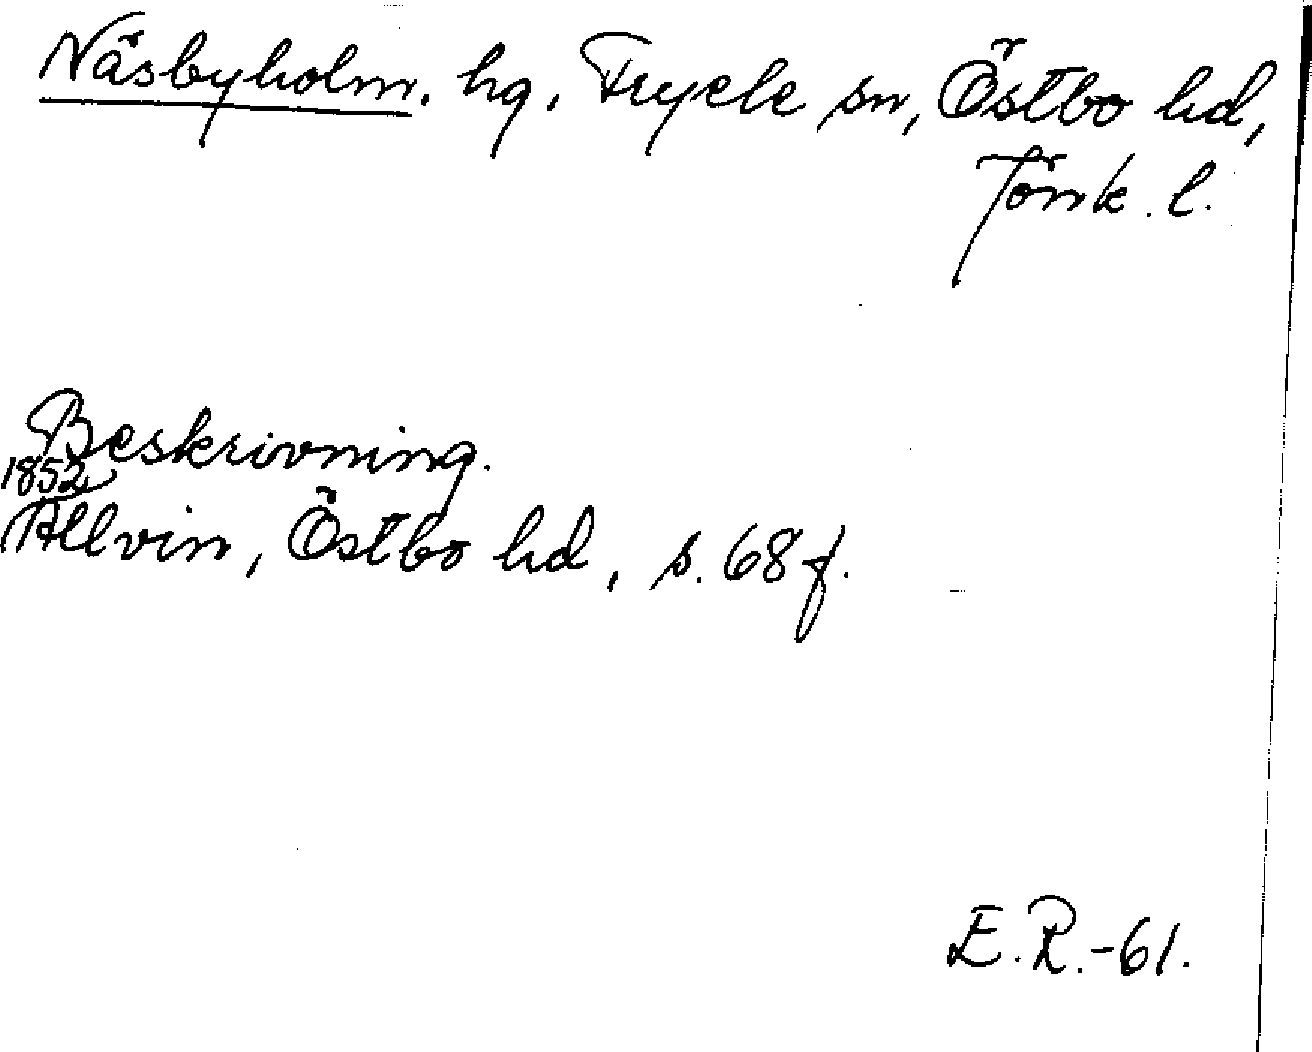 Näsbyholm. hg, Fryele sn, Östbo hd,
Jönk. l.
Beskrivning.
1852
Allvin, Östbo hd, s. 68 f.
E. R. -61.